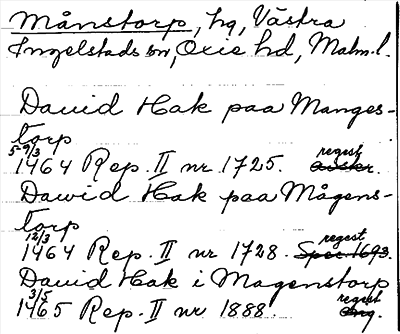 Månstorp, hg, Västra
Ingelstads sn, Oxie hd, Malm.l.
David Hak paa Manges-
torp
5-9/3 regest
1464 Rep. II nr 1725. avskr.
Dawid Hak paa Mågens-
torp
12/3 regest
1464 Rep. II nr 1728. Spec. 1693.
David Hak i Magenstorp
3/5 regest
1465 Rep. II nr 1888. orig.